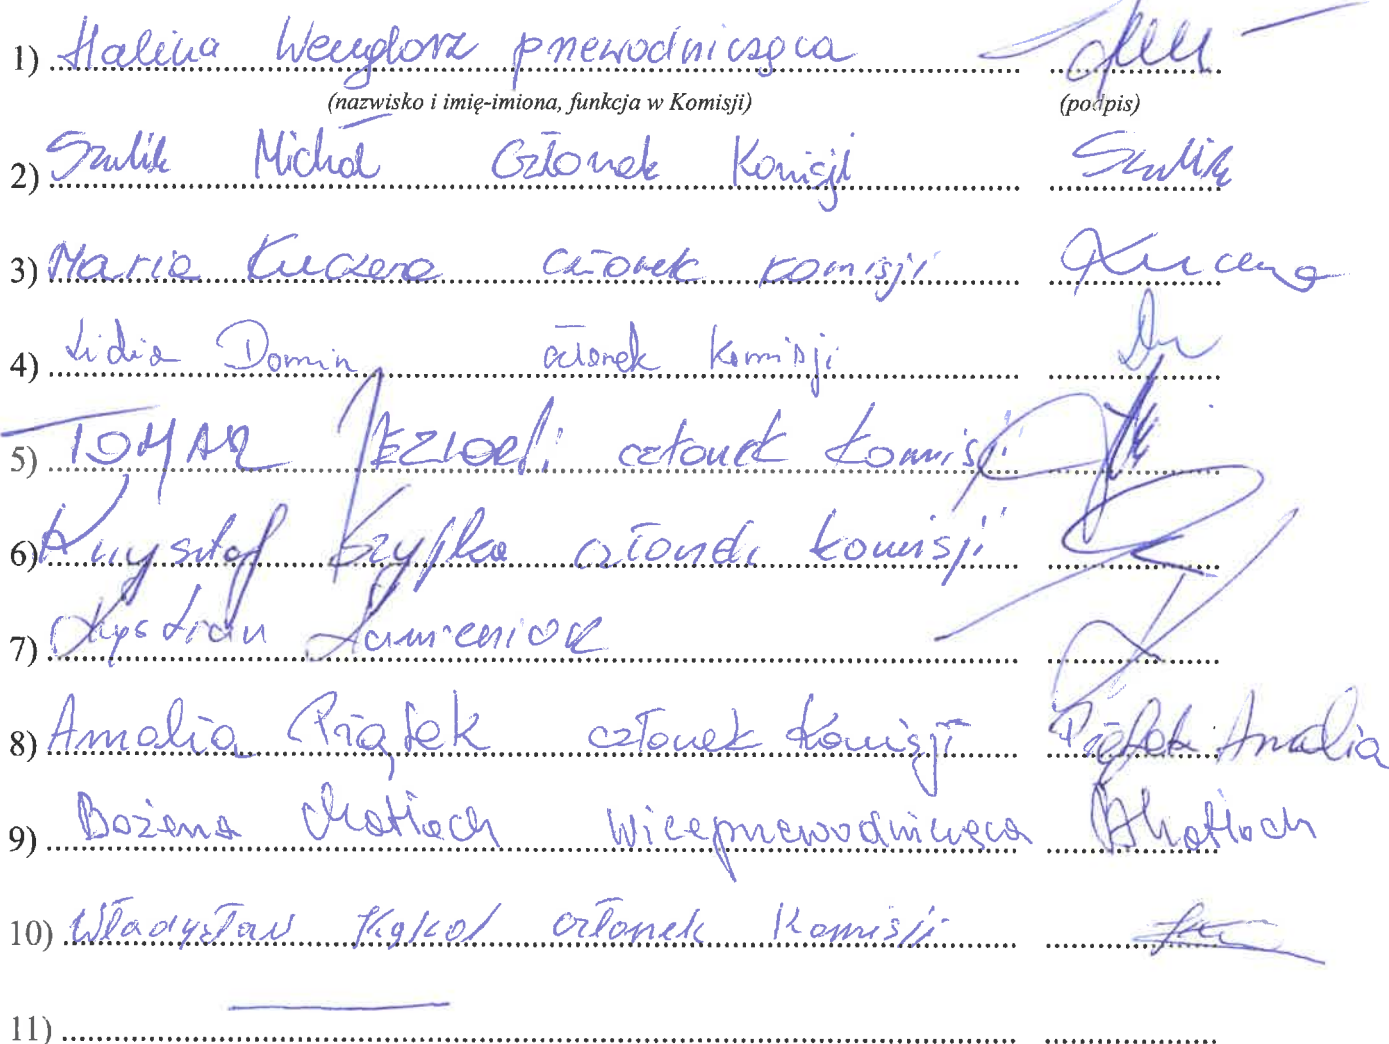 1) Halina Wenglorz przewodnicząca
(nazwisko i imię-imiona, funkcja w Komisji) (podpis)
2) Szulik Michał Członek Komisji Szulik
3) Maria Kuczera członek komisji Kuczera
4) Lidia Domin członek komisji
5) członek Komisji
6) Krzysztof członek komisji
7)
8) Amalia Piątek członek Komisji Piątek Amalia
9) Bożena Matloch Wiceprzewodnicząca BMatloch
10) Władysław Kąkol członek Komisji
11)